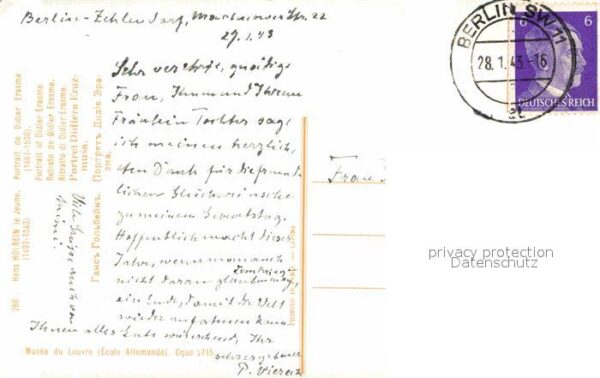 Berlin-Zehlendorf, Machnower Str. 22
27.1.43
Sehr verehrte, gnädige
Frau, Ihnen und Ihrem
Fräulein Tochter sage
ich meinen herzlich-
sten Dank für die freund-
lichen Glückwünsche
zu meinem Geburtstag.
Hoffentlich macht dieses
Jahr, wenn man auch
nicht daran glauben mag,
dem Krieg
ein Ende, damit die Welt
wieder aufatmen kann.
Ihnen alles Gute wünschend, Ihr
sehr ergebener
P.
Viele Grüße auch von
Frau
288 Hans HOLBEIN le Jeune.
(1497-1543)
Portrait de Didier Erasme
(1467-1536).
Portrait of Didier Erasme
Retrato de Didier Erasme
Ritratto di Didier Erasme.
Portret Didiera Eraz-
musa.
Гансъ Гольбейнъ. Портретъ Дидіе Эра-
зма.
Musée du Louvre (École Allemande). Cque 2715
BERLIN SW 11
28.1.43-16
6
6
DEUTSCHES REICH
privacy protection
Datenschutz